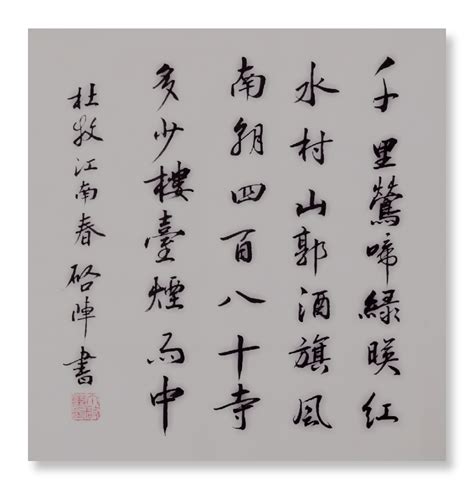 千里鶯啼綠暎紅
水村山郭酒旗風
南朝四百八十寺
多少樓臺煙雨中
杜牧江南春 硌陣書